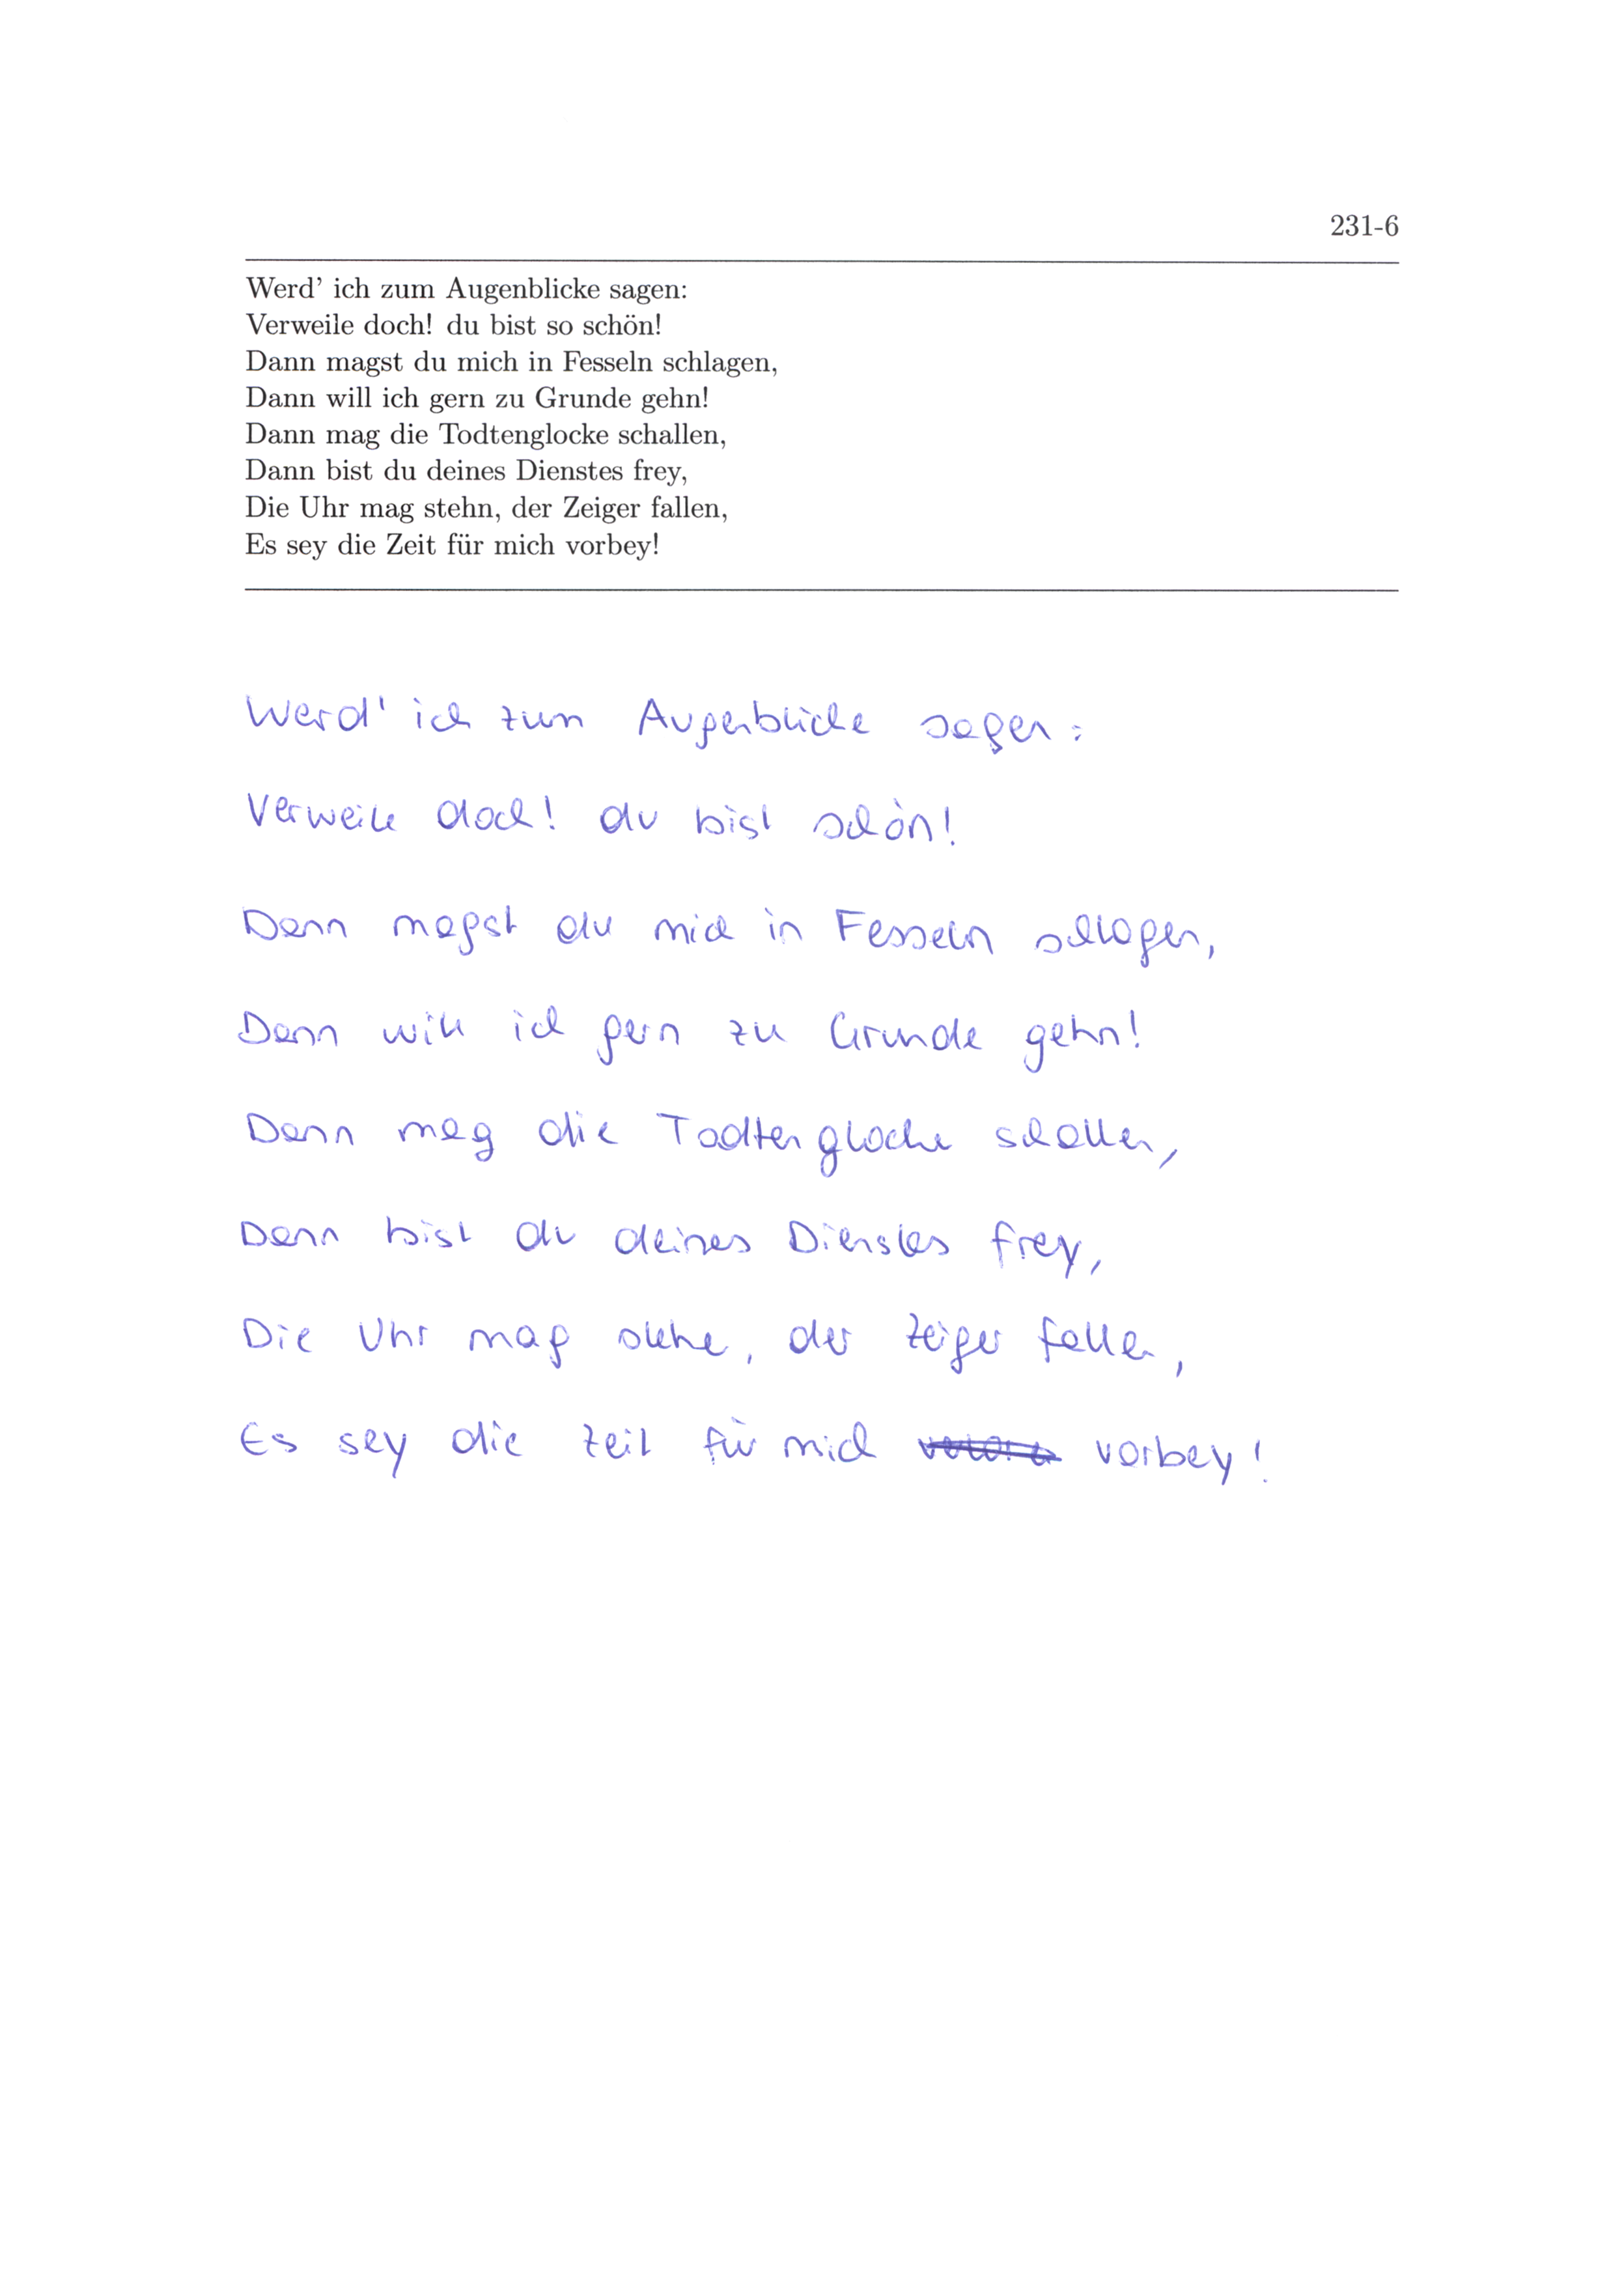 231-6
Werd' ich zum Augenblicke sagen:
Verweile doch! du bist so schön!
Dann magst du mich in Fesseln schlagen,
Dann will ich gern zu Grunde gehn!
Dann mag die Todtenglocke schallen,
Dann bist du deines Dienstes frey,
Die Uhr mag stehn, der Zeiger fallen,
Es sey die Zeit für mich vorbey!
Werd' ich zum Augenblicke sagen:
Verweile doch! du bist schön!
Dann magst du mich in Fesseln schlagen,
Dann will ich gern zu Grunde gehn!
Dann mag die Todtenglocke schallen,
Dann bist du deines Dienstes frey,
Die Uhr mag stehe, der Zeiger fallen,
Es sey die Zeit für mich vorbey!